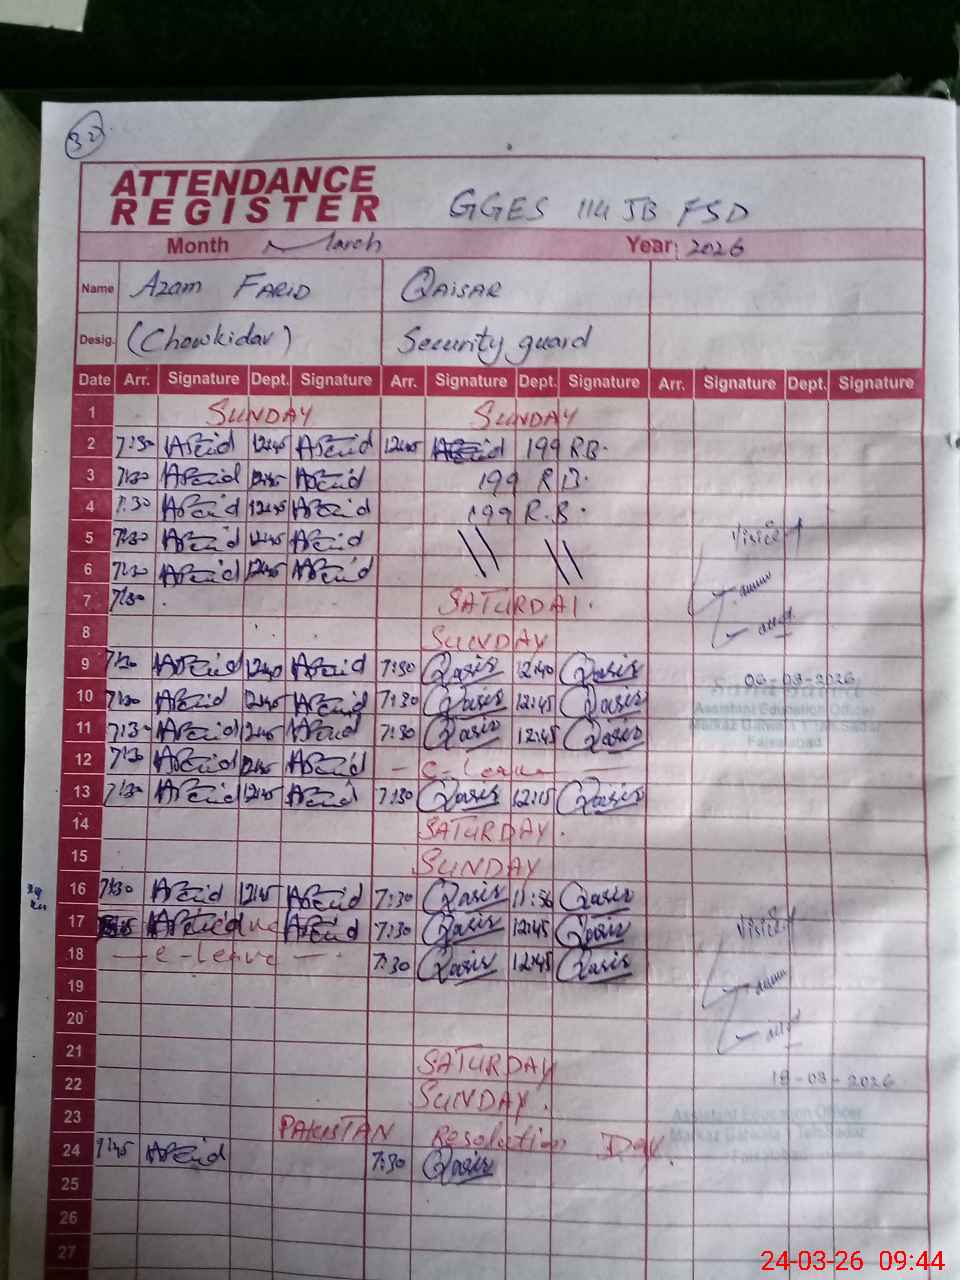 32
ATTENDANCE
REGISTER GGES 114 JB FSD
Month March Year: 2026
Name Azam FARID QAISAR
Desig. (Chowkidar) Security guard
Date Arr. Signature Dept. Signature Arr. Signature Dept. Signature Arr. Signature Dept. Signature
1 SUNDAY SUNDAY
2 7:30 AFarid 12:45 AFarid 12:45 199 RB.
3 7:30 AFarid 12:45 AFarid 199 RB.
4 7:30 AFarid 12:45 AFarid 199 R.B.
5 7:30 AFarid 12:45 AFarid \\ \\ Visited
6 7:30 AFarid 12:45 AFarid
7 7:30 SATURDAY.
8 SUNDAY
9 7:30 AFarid 12:40 AFarid 7:30 Qasir 12:40 Qasir 06-03-2026
10 7:30 AFarid 12:45 AFarid 7:30 Qasir 12:45 Qasir Assistant Education Officer
11 7:30 AFarid 12:45 AFarid 7:30 Qasir 12:45 Qasir Faisalabad
12 7:30 AFarid 12:45 AFarid - e-leave -
13 7:30 AFarid 12:45 AFarid 7:30 Qasir 12:15 Qasir
14 SATURDAY.
15 SUNDAY
16 7:30 AFarid 12:45 AFarid 7:30 Qasir 11:56 Qasir
17 AFarid 7:30 Qasir 12:45 Qasir Visited
18 - e-leave - 7:30 Qasir 12:45 Qasir
19
20
21 SATURDAY
22 SUNDAY. 18-03-2026
23 PAKISTAN Resolution Day. Assistant Education Officer
24 7:45 AFarid 7:30 Qasir
25
26
27
24-03-26 09:44